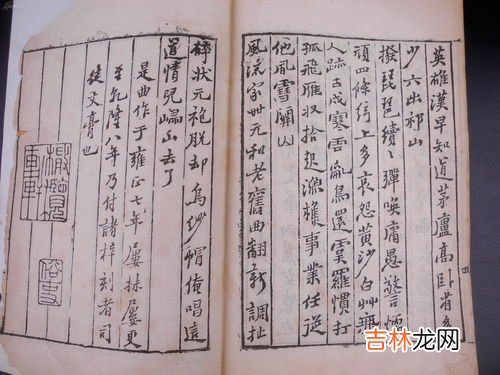 英雄漢早知道茅廬高卧省多
少六出祁山
撥琵琶續〻彈喚庸愚警懦
頑四條絃上多哀怨黃沙白艸無
人跡古戍寒雲亂鳥還虞羅慣打
孤飛雁收拾起漁樵事業任從
他風雪關山
風流家世元和老舊曲翻新調扯
碎狀元袍脫却烏紗帽俺唱這
道情兒歸山去了
是曲作于雍正七年屢抹屢更
至乾隆八年乃付諸梓刻者司
徒文膏也
橄欖軒
俗吏
吉林龙网